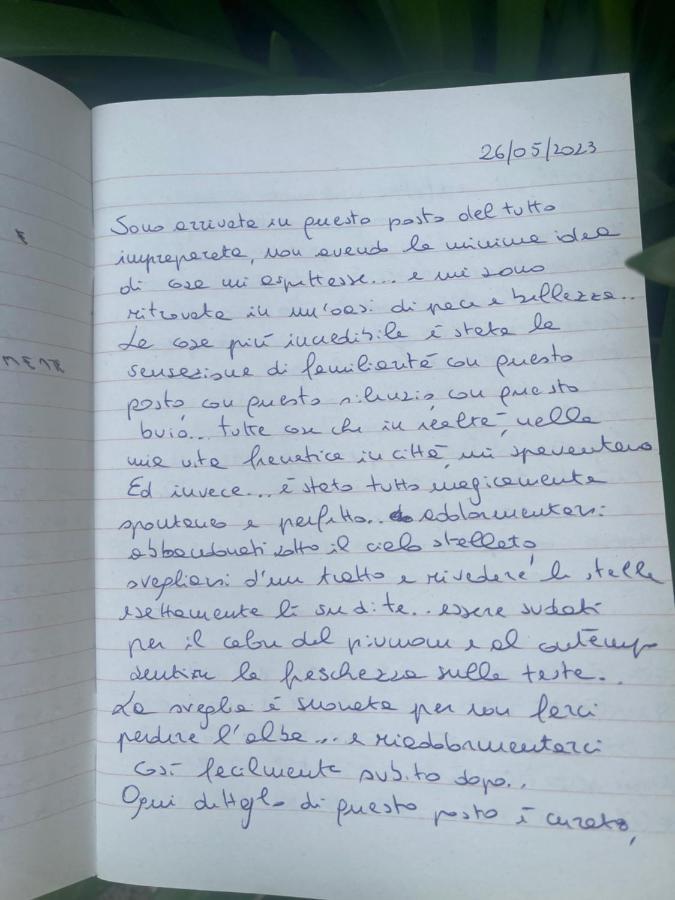 26/05/2023
Sono arrivata in questo posto del tutto
impreparata, non avendo la minima idea
di cosa mi aspettasse... e mi sono
ritrovata in un'oasi di pace e bellezza..
La cosa più incredibile è stata la
sensazione di familiarità con questo
posto con questo silenzio con questo
buio... tutte cose che in realtà, nella
mia vita frenetica in città, mi spaventano
Ed invece... è stato tutto magicamente
spontaneo e perfetto.. addormentarsi
abbandonati sotto il cielo stellato,
svegliarsi d'un tratto e rivedere le stelle
esattamente lì su di te.. essere sudati
per il calore del piumone e al contempo
sentire la freschezza sulla testa..
La sveglia è suonata per non farci
perdere l'alba... e riaddormentarci
così facilmente subito dopo..
Ogni dettaglio di questo posto è curato,